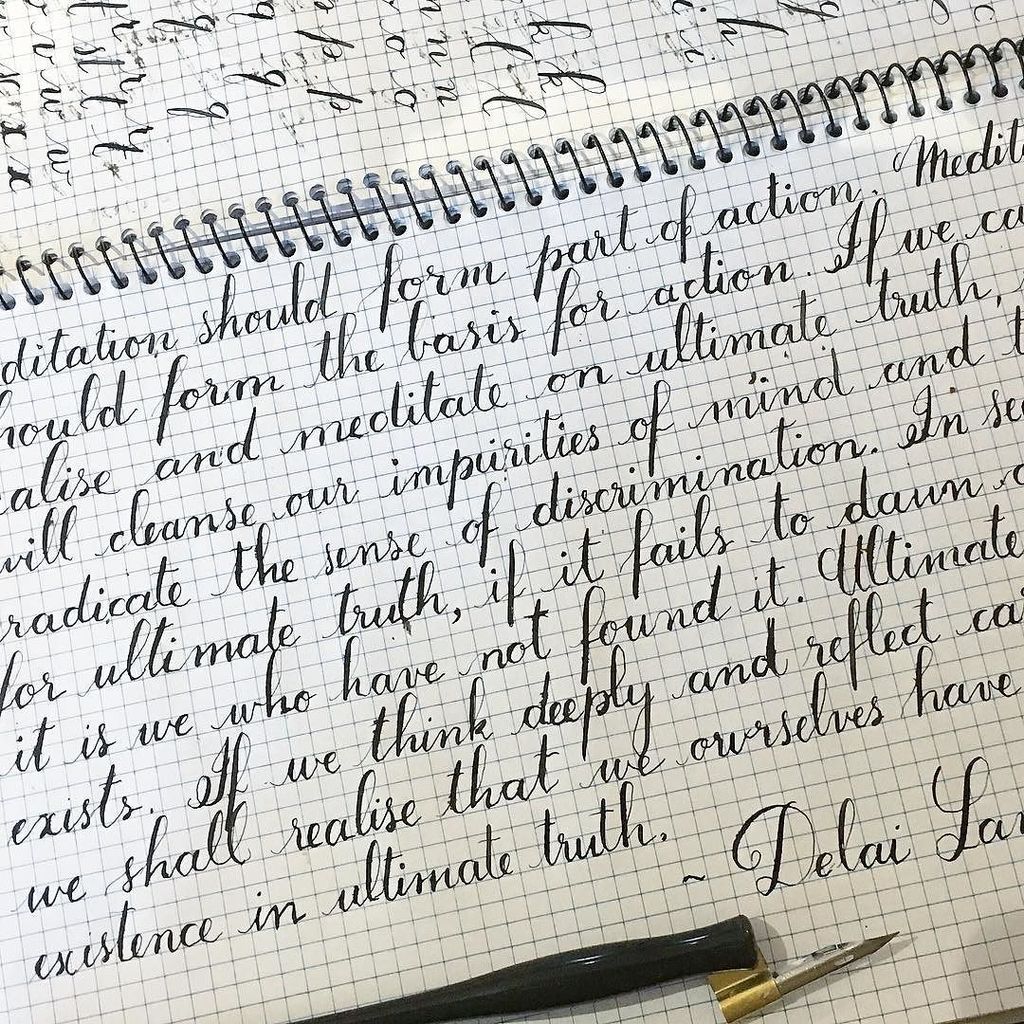 ditation should form part of action. Medit
hould form the basis for action. If we ca
alise and meditate on ultimate truth,
will cleanse our impurities of mind and t
radicate the sense of discrimination. In se
for ultimate truth, if it fails to dawn o
it is we who have not found it. Ultimate
exists. If we think deeply and reflect ca
we shall realise that we ourselves have
existence in ultimate truth.
~ Delai Lam